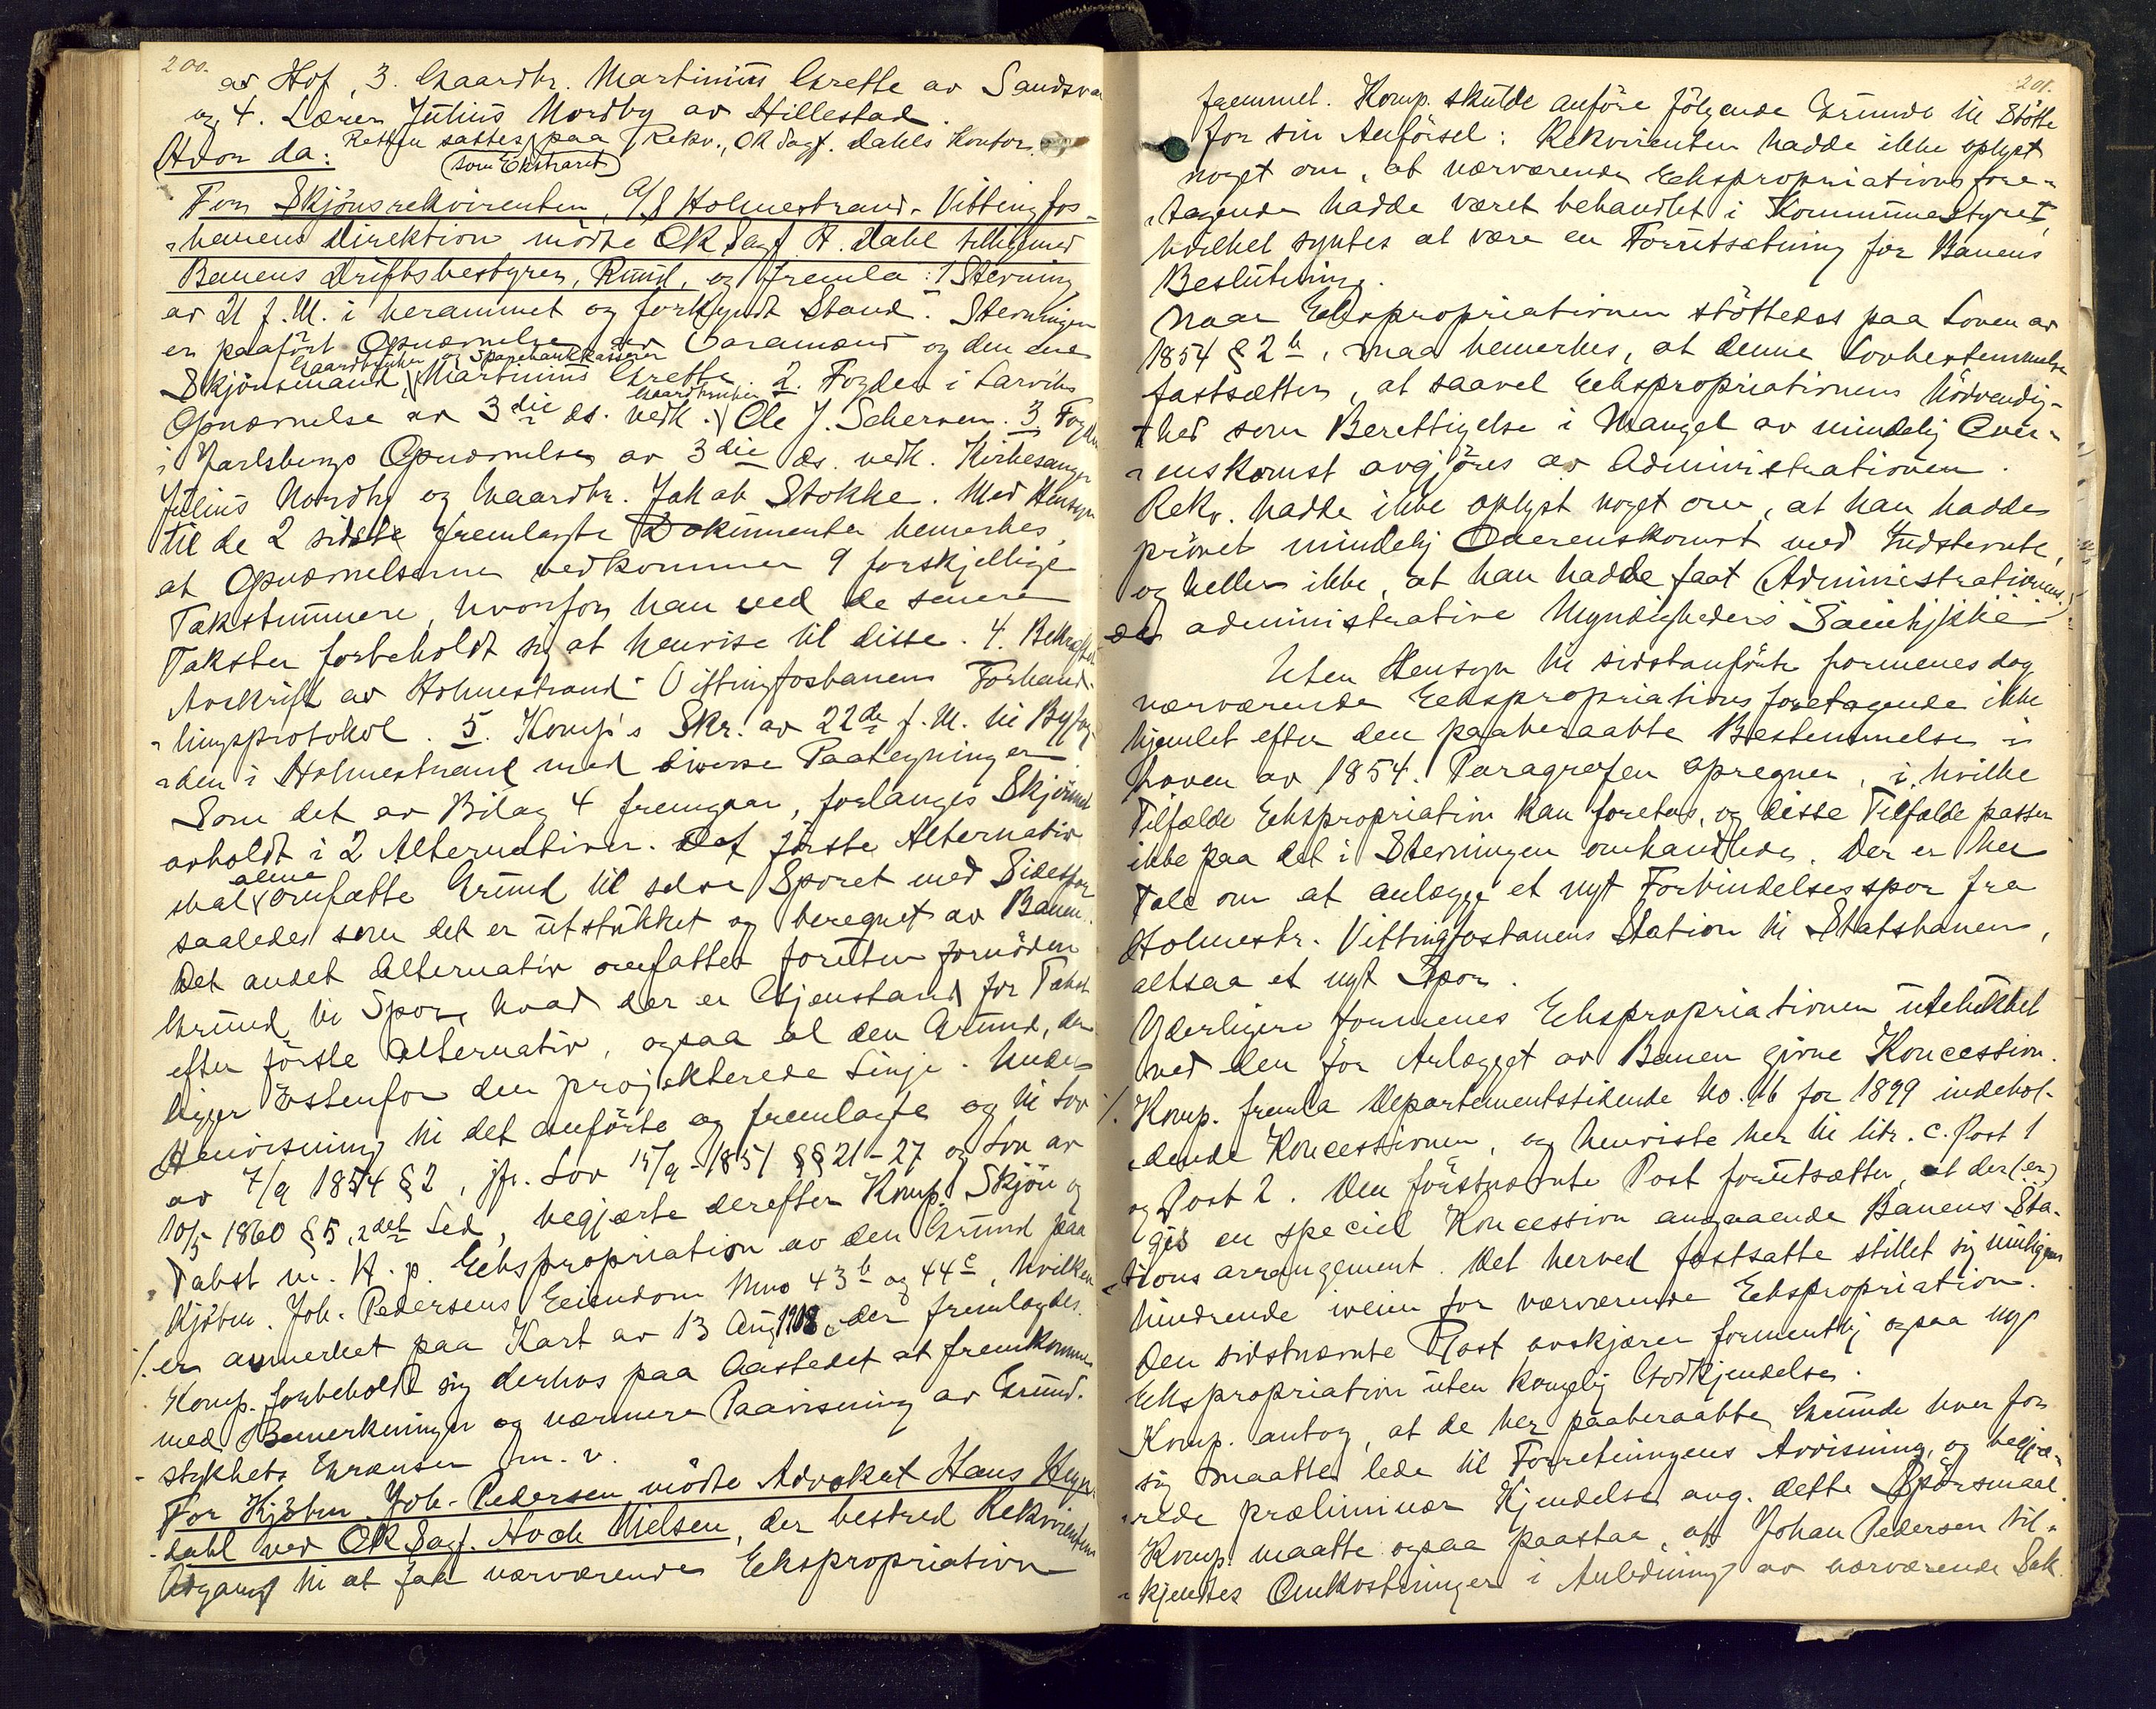 200.
av Hof, 3. Gaardbr. Martinius Grette av Sandsvær
og 4. Lærer Julius Nordby av Hillestad.
Retten sattes (som Ekstraret) paa Rekv., OR Sagf. Dahls Kontor.
Hvor da:
For Skjönsrekvirenten, A/S Holmestrand-Vittingfos-
banens Direktion mödte OR Sagf. A. Dahl tilligemed
Banens Driftsbestyrer, Ruud, og fremla: 1 Stevning
av 21 f. M. i berammet og forkyndt Stand. Stevningen
er paafört Opnævnelse av Varamænd og den ene
Gaardbruker og Sparebankkasserer
Skjönsmand, Martinius Grette. 2. Fogden i Larviks
Gaardbruker
Opnævnelse av 3die ds. vedk. Ole J. Scherven. 3. Fogden
i Jarlsbergs Opnævnelse av 3die ds. vedk. Kirkesanger
Julius Nordby og Gaardbr. Jakob Stokke. Med Hensyn
til de 2 sidste fremlagte Dokumenter bemerkes,
at Opnævnelserne vedkommer 9 forskjellige
Takstnummere, hvorfor han ved de senere
Takster forbeholdt sig at henvise til disse. 4. Bekræftet
Avskrift av Holmestrand-Vittingfosbanens Forhand-
lingsprotokol. 5. Komp's Skr. av 22de f. M. til Byfog-
den i Holmestrand med diverse Paategninger.
Som det av Bilag 4 fremgaar, forlanges Skjönnet
avholdt i 2 Alternativer. Det förste Alternativ
alene
skal omfatte Grund til selve Sporet med Sidespor
saaledes som det er utstukket og beregnet av Banen.
Det andet Alternativ omfatter foruten fornöden
Grund til Spor, hvad der er Gjenstand for Takst
efter förste Alternativ, ogsaa al den Grund, der
ligger Östenfor den projekterede Linje. Under
Henvisning til det anförte og fremlagte og til Lov
av 7/9 1854 § 2, jfr. Lov 15/9-1851 §§ 21-27 og Lov av
10/5 1860 § 5, 2det Led, begjærte derefter Komp. Skjön og
Takst m. H. p. Ekspropriation av den Grund paa
Kjöbm. Joh. Pedersens Eiendom Mno 43b og 44c, hvilken
·/. er anmerket paa Kart av 13 Aug 1908, der fremlagdes.
Komp. forbeholdt sig derhos paa Aastedet at fremkomme
med Bemerkninger og nærmere Paavisning av Grund-
stykkets Grænser m. v.
For Kjöbm. Joh. Pedersen mödte Advokat Hans Heyer-
dahl ved OR Sagf. Hoch Nielsen, der bestred Rekvirentens
Adgang til at faa nærværende Ekspropriation
201.
fremmet. Komp. skulde anföre fölgende Grunde til Stötte
for sin Anförsel: Rekvirenten hadde ikke oplyst
noget om, at nærværende Ekspropriationsfore-
tagende hadde været behandlet i Kommunestyret,
hvilket syntes at være en Forutsætning for Banens
Beslutning.
Naar Ekspropriationen stöttedes paa Loven av
1854 § 2b, maa bemerkes, at denne Lovbestemmelse
fastsætter, at saavel Ekspropriationens Nödvendig-
hed som Berettigelse i Mangel av mindelig Over-
enskomst avgjöres av Administrationen.
Rekv. hadde ikke oplyst noget om, at han hadde
prövet mindelig Overenskomst med Indstevnte,
og heller ikke, at han hadde faat (Administrationens)
de administrative Myndigheders Samtykke
Uten Hensyn til sidstanförte formenes dog
nærværende Ekspropriationsforetagende ikke
hjemlet efter den paaberaabte Bestemmelse i
Loven av 1854. Paragrafen opregner, i hvilke
Tilfælde Ekspropriation kan foretas, og disse Tilfælde passer
ikke paa det i Stevningen omhandlede. Der er her
Tale om at anlægge et nyt Forbindelsesspor fra
Holmestr.-Vittingfosbanens Station til Statsbanen,
altsaa et nyt Spor.
Yderligere formenes Ekspropriationen utelukket
ved den for Anlægget av Banen givne Koncession.
·/. Komp. fremla Departementstidende No. 16 for 1899 indehol-
dende Koncessionen, og henviste her til litr. C. Post 1
og Post 2. Den förstnævnte Post forutsætter, at der (er)
gis en speciel Koncession angaaende Banens Sta-
tionsarrangement. Det herved fastsatte stillet sig muligens
hindrende iveien for nærværende Ekspropriation.
Den sidstnævnte Post avskjærer formentlig ogsaa ny
Ekspropriation uten kongelig Godkjendelse.
Komp. antog, at de her paaberaabte Grunde hver for
sig maatte lede til Forretningens Avvisning, og begjæ-
rede præliminær Kjendelse ang. dette Spörsmaal.
Komp. maatte ogsaa paastaa, at Johan Pedersen til-
kjendtes Omkostninger i Anledning av nærværende Sak.